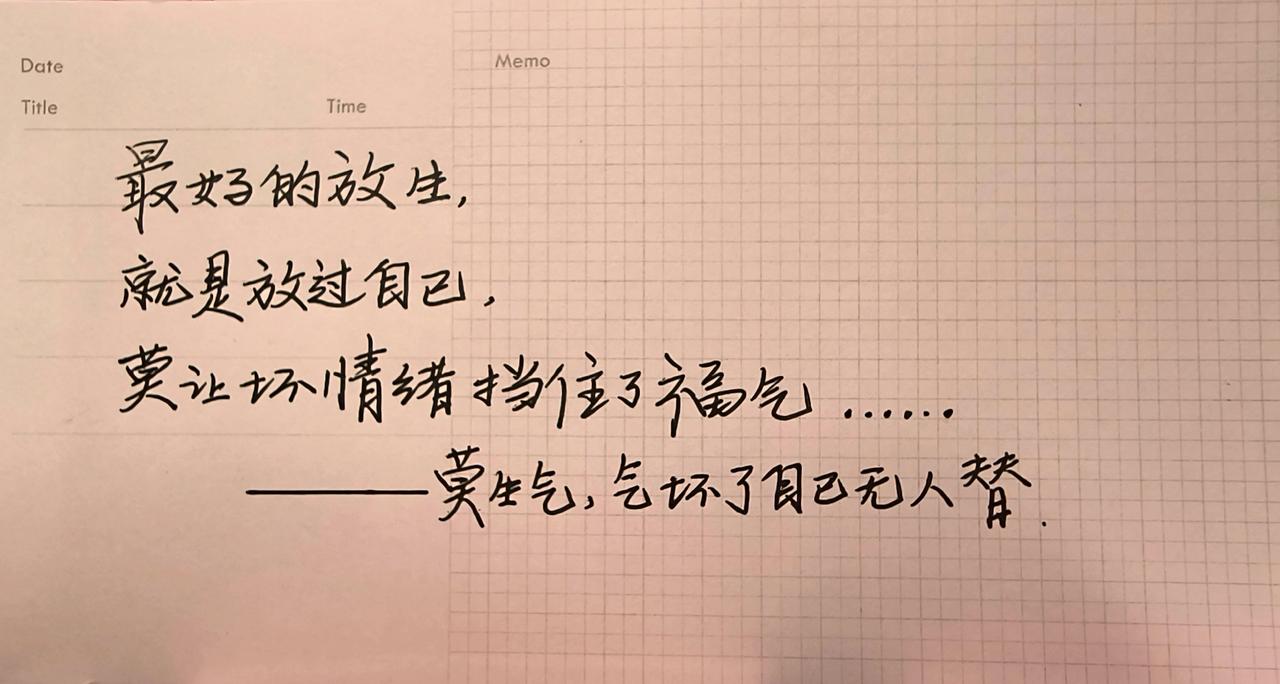 Date
Memo
Title
Time
最好的放生,
就是放过自己,
莫让坏情绪挡住了福气……
——莫生气,气坏了自己无人替.